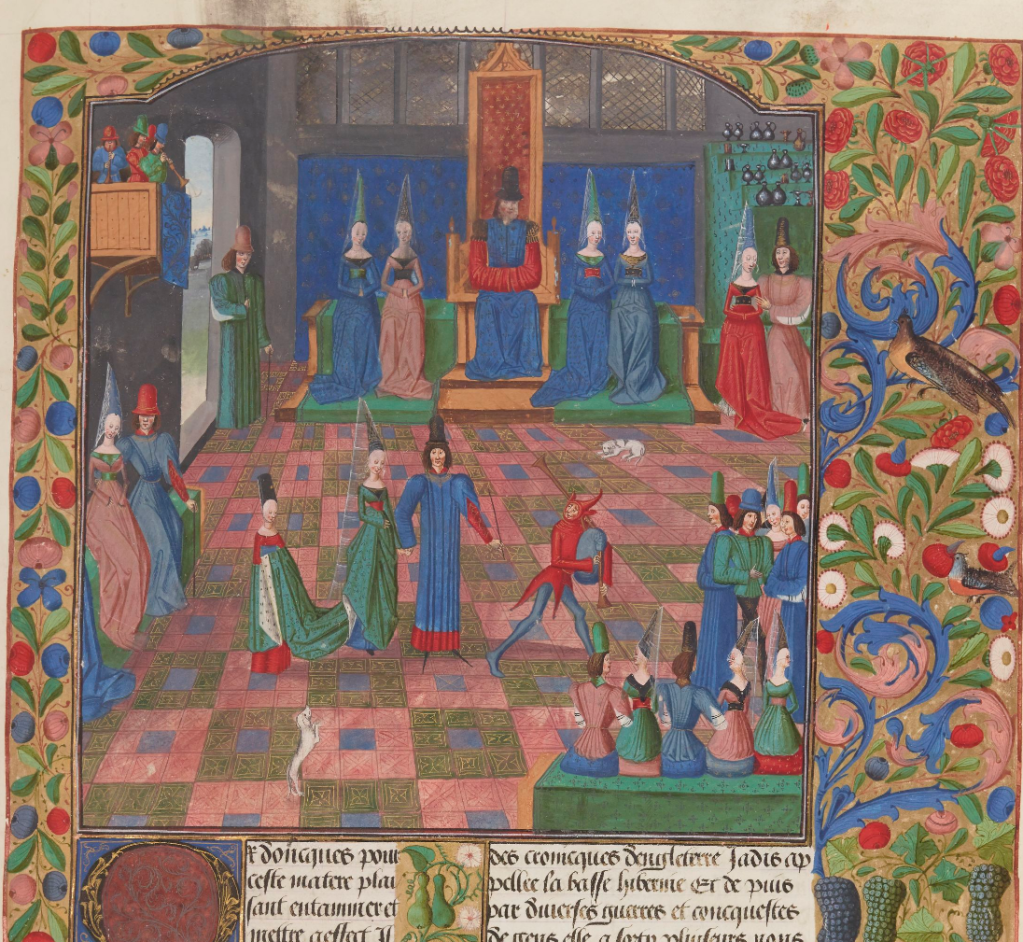 R doncques pour
ceste matere plai
sant entammer et
mettre a effect Il
des cronicques dengleterre Jadis ap
pellee la basse hibernie Et de puis
par diuerses guerres et concquestes
de gens elle a sorty pluiseurs noms